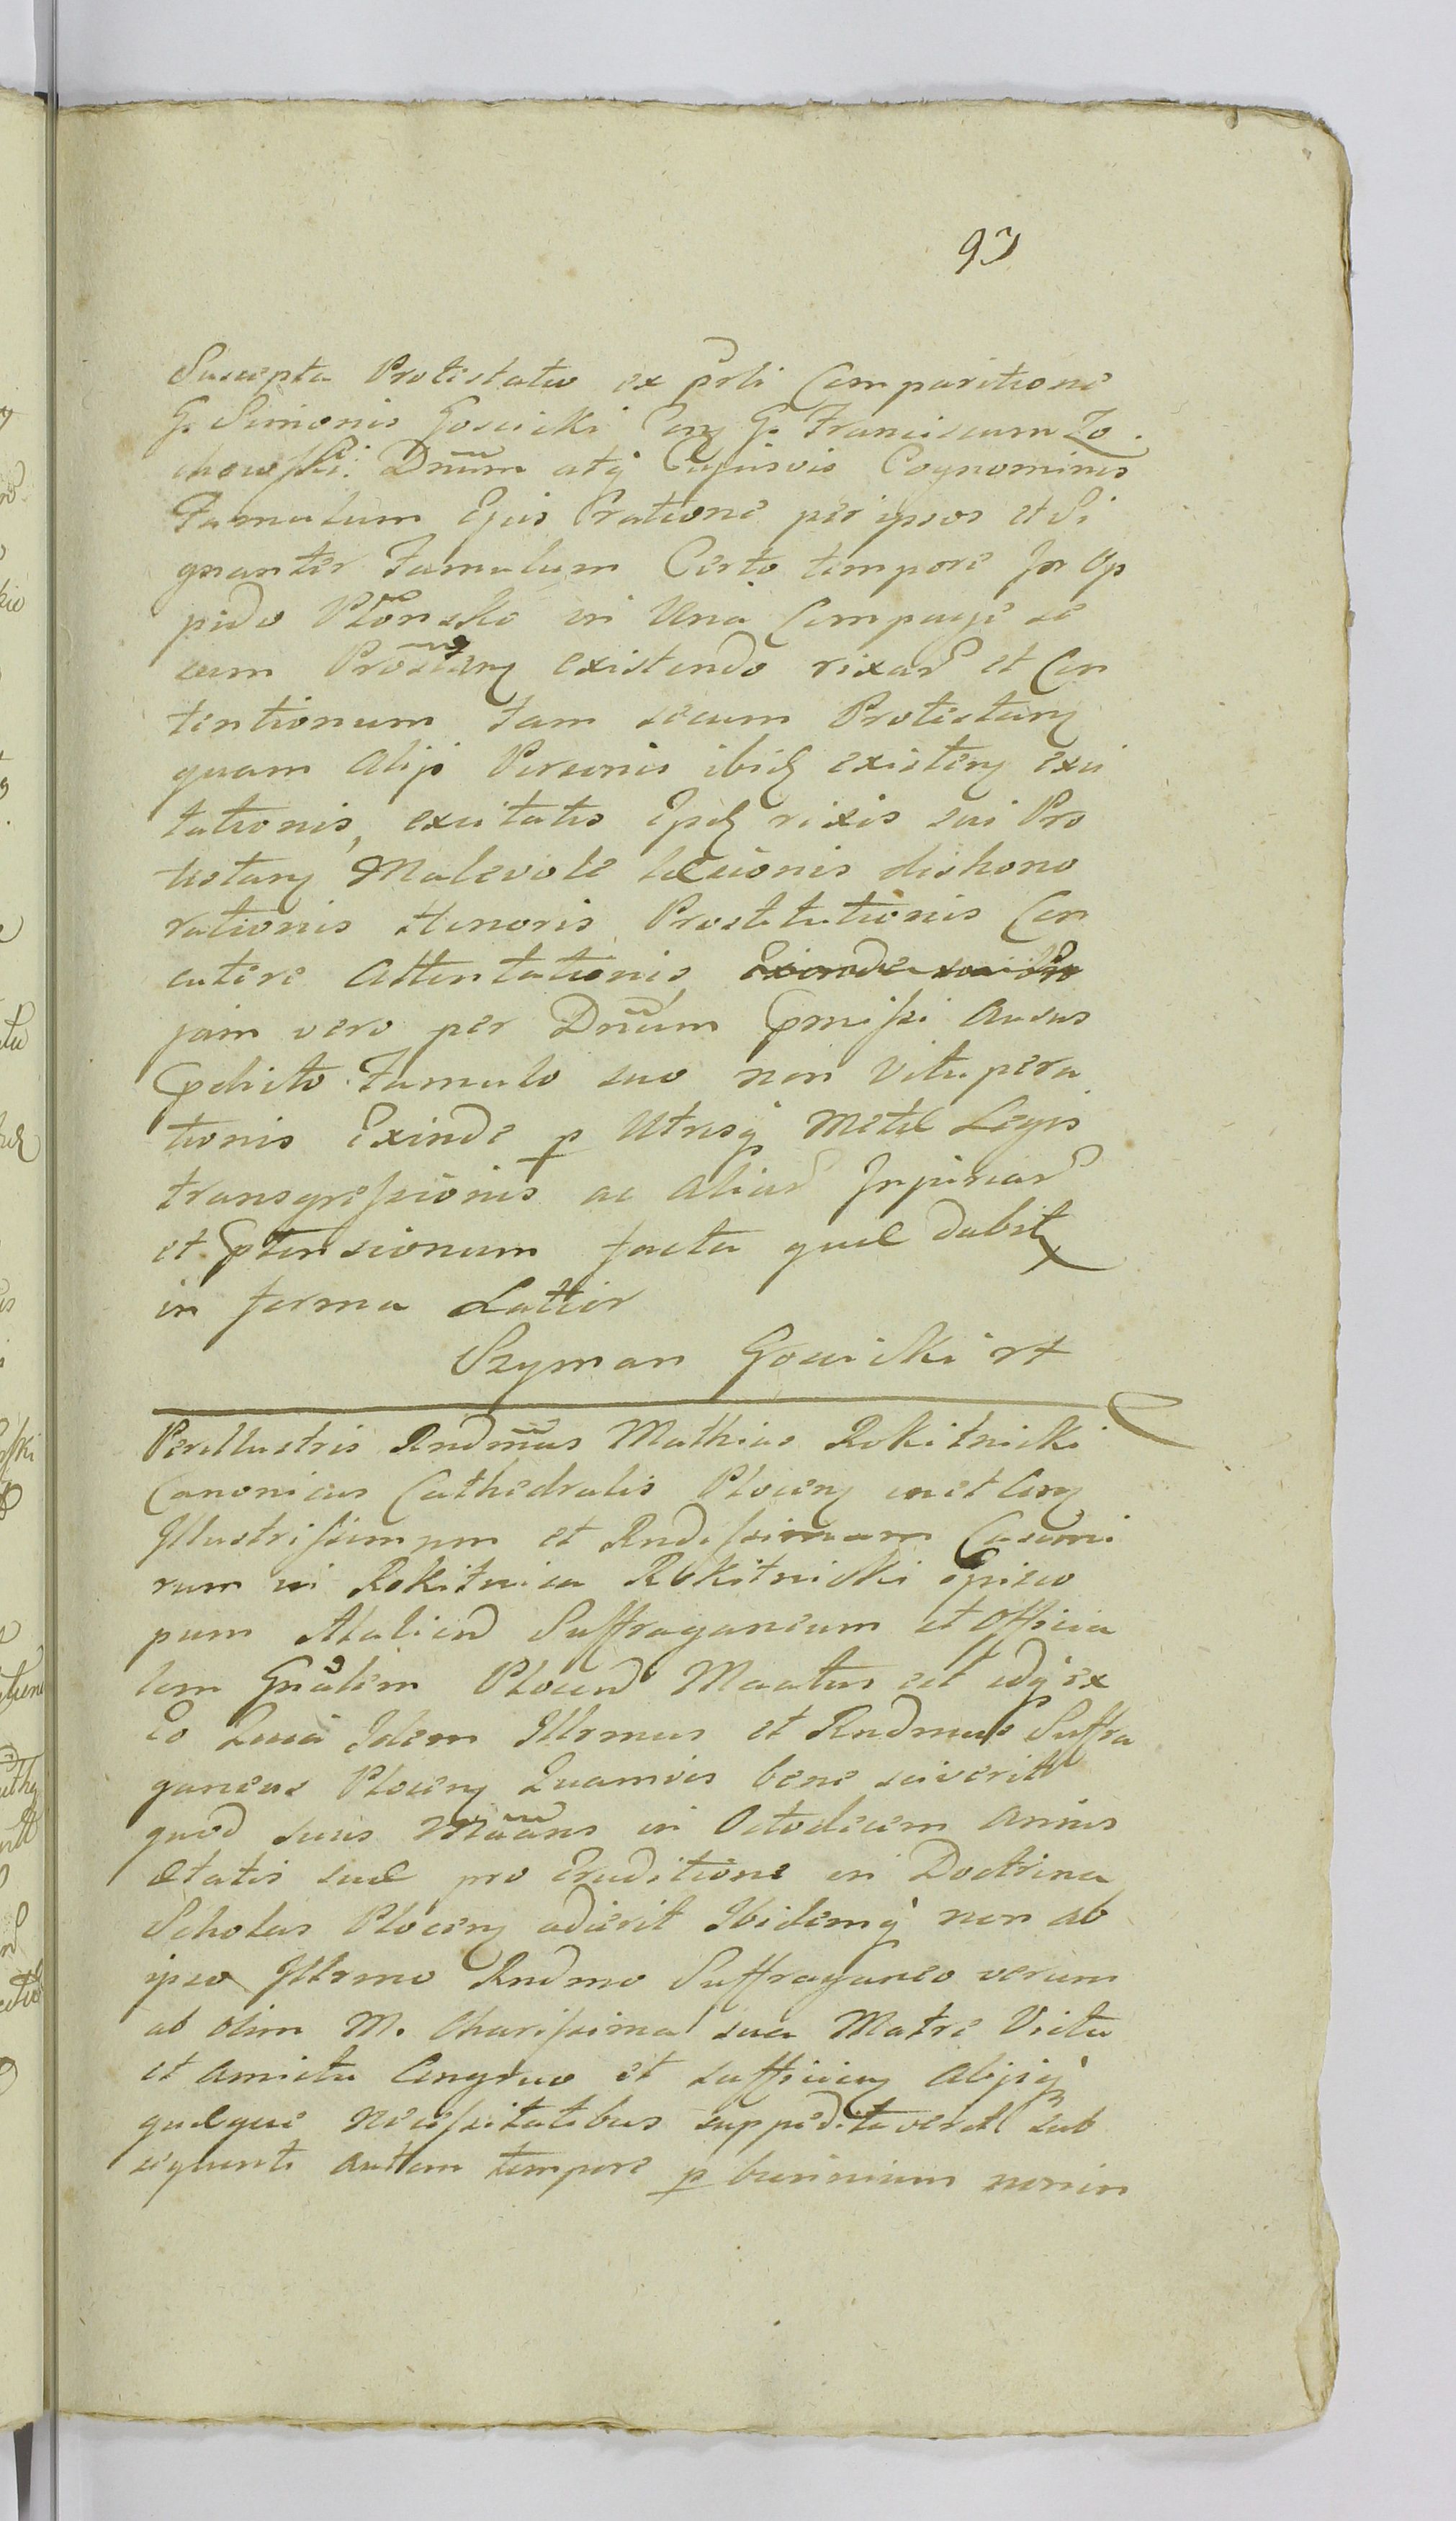 93
Suscepta Protestatio ex prsti Comparitione
G. Simonis Goscicki Con G. Franciscum Zo
chowski Dnum atq Cujusvis Cognominis
Famulum Ejus ratione per ipsos et Si
gnanter Famulum Certo tempore In Op
pido Płonsko in Una Compagi se
cum Protestan existendo rixar et Con
tentionum tam secum Protestan
quam alijs Personis ibid existen exci
tationis, excitatis Epd rixis sui Pro
testan Malevole locucionis dishono
rationis Honoris Prostitutionis Con
cutere Attentationis,
jam vero per Dnum Pmissi Ausus
Pdicto Famulo suo non Vitupera
tionis Exinde p Utrosq Metae Legis
transgressionis ac aliar Injuriar
et Ptensionum facta quae dabit
in forma Lattior
Szyman Goscicki rt
Perillustris Rndmus Mathias Rokitnicki
Canonicus Cathedralis Plocen in et Con
Illustrissimum et Rndissimum Casimi
rum in Rokitnica Rokitnicki Episco
pum Suffraganeum et Officia
lem Gnalem Plocen Mtus est idq ex
Eo Quia Idem Illrmus et Rndmus Suffra
ganeus Plocen Quamvis bene sciverit
quod suus Mans in Octodecim annis
Etatis suae pro Eruditione in Doctrina
Scholas Plocen adierit Ibidemq non ab
ipso Illrmo Rndmo Suffraganeo verum
ab olim M. Charissima sua Matre Victu
et amictu Congruo et sufficien alijsq
quaeque necessitatibus suppeditaverit Sub
sequenti autem tempore p biennium non in